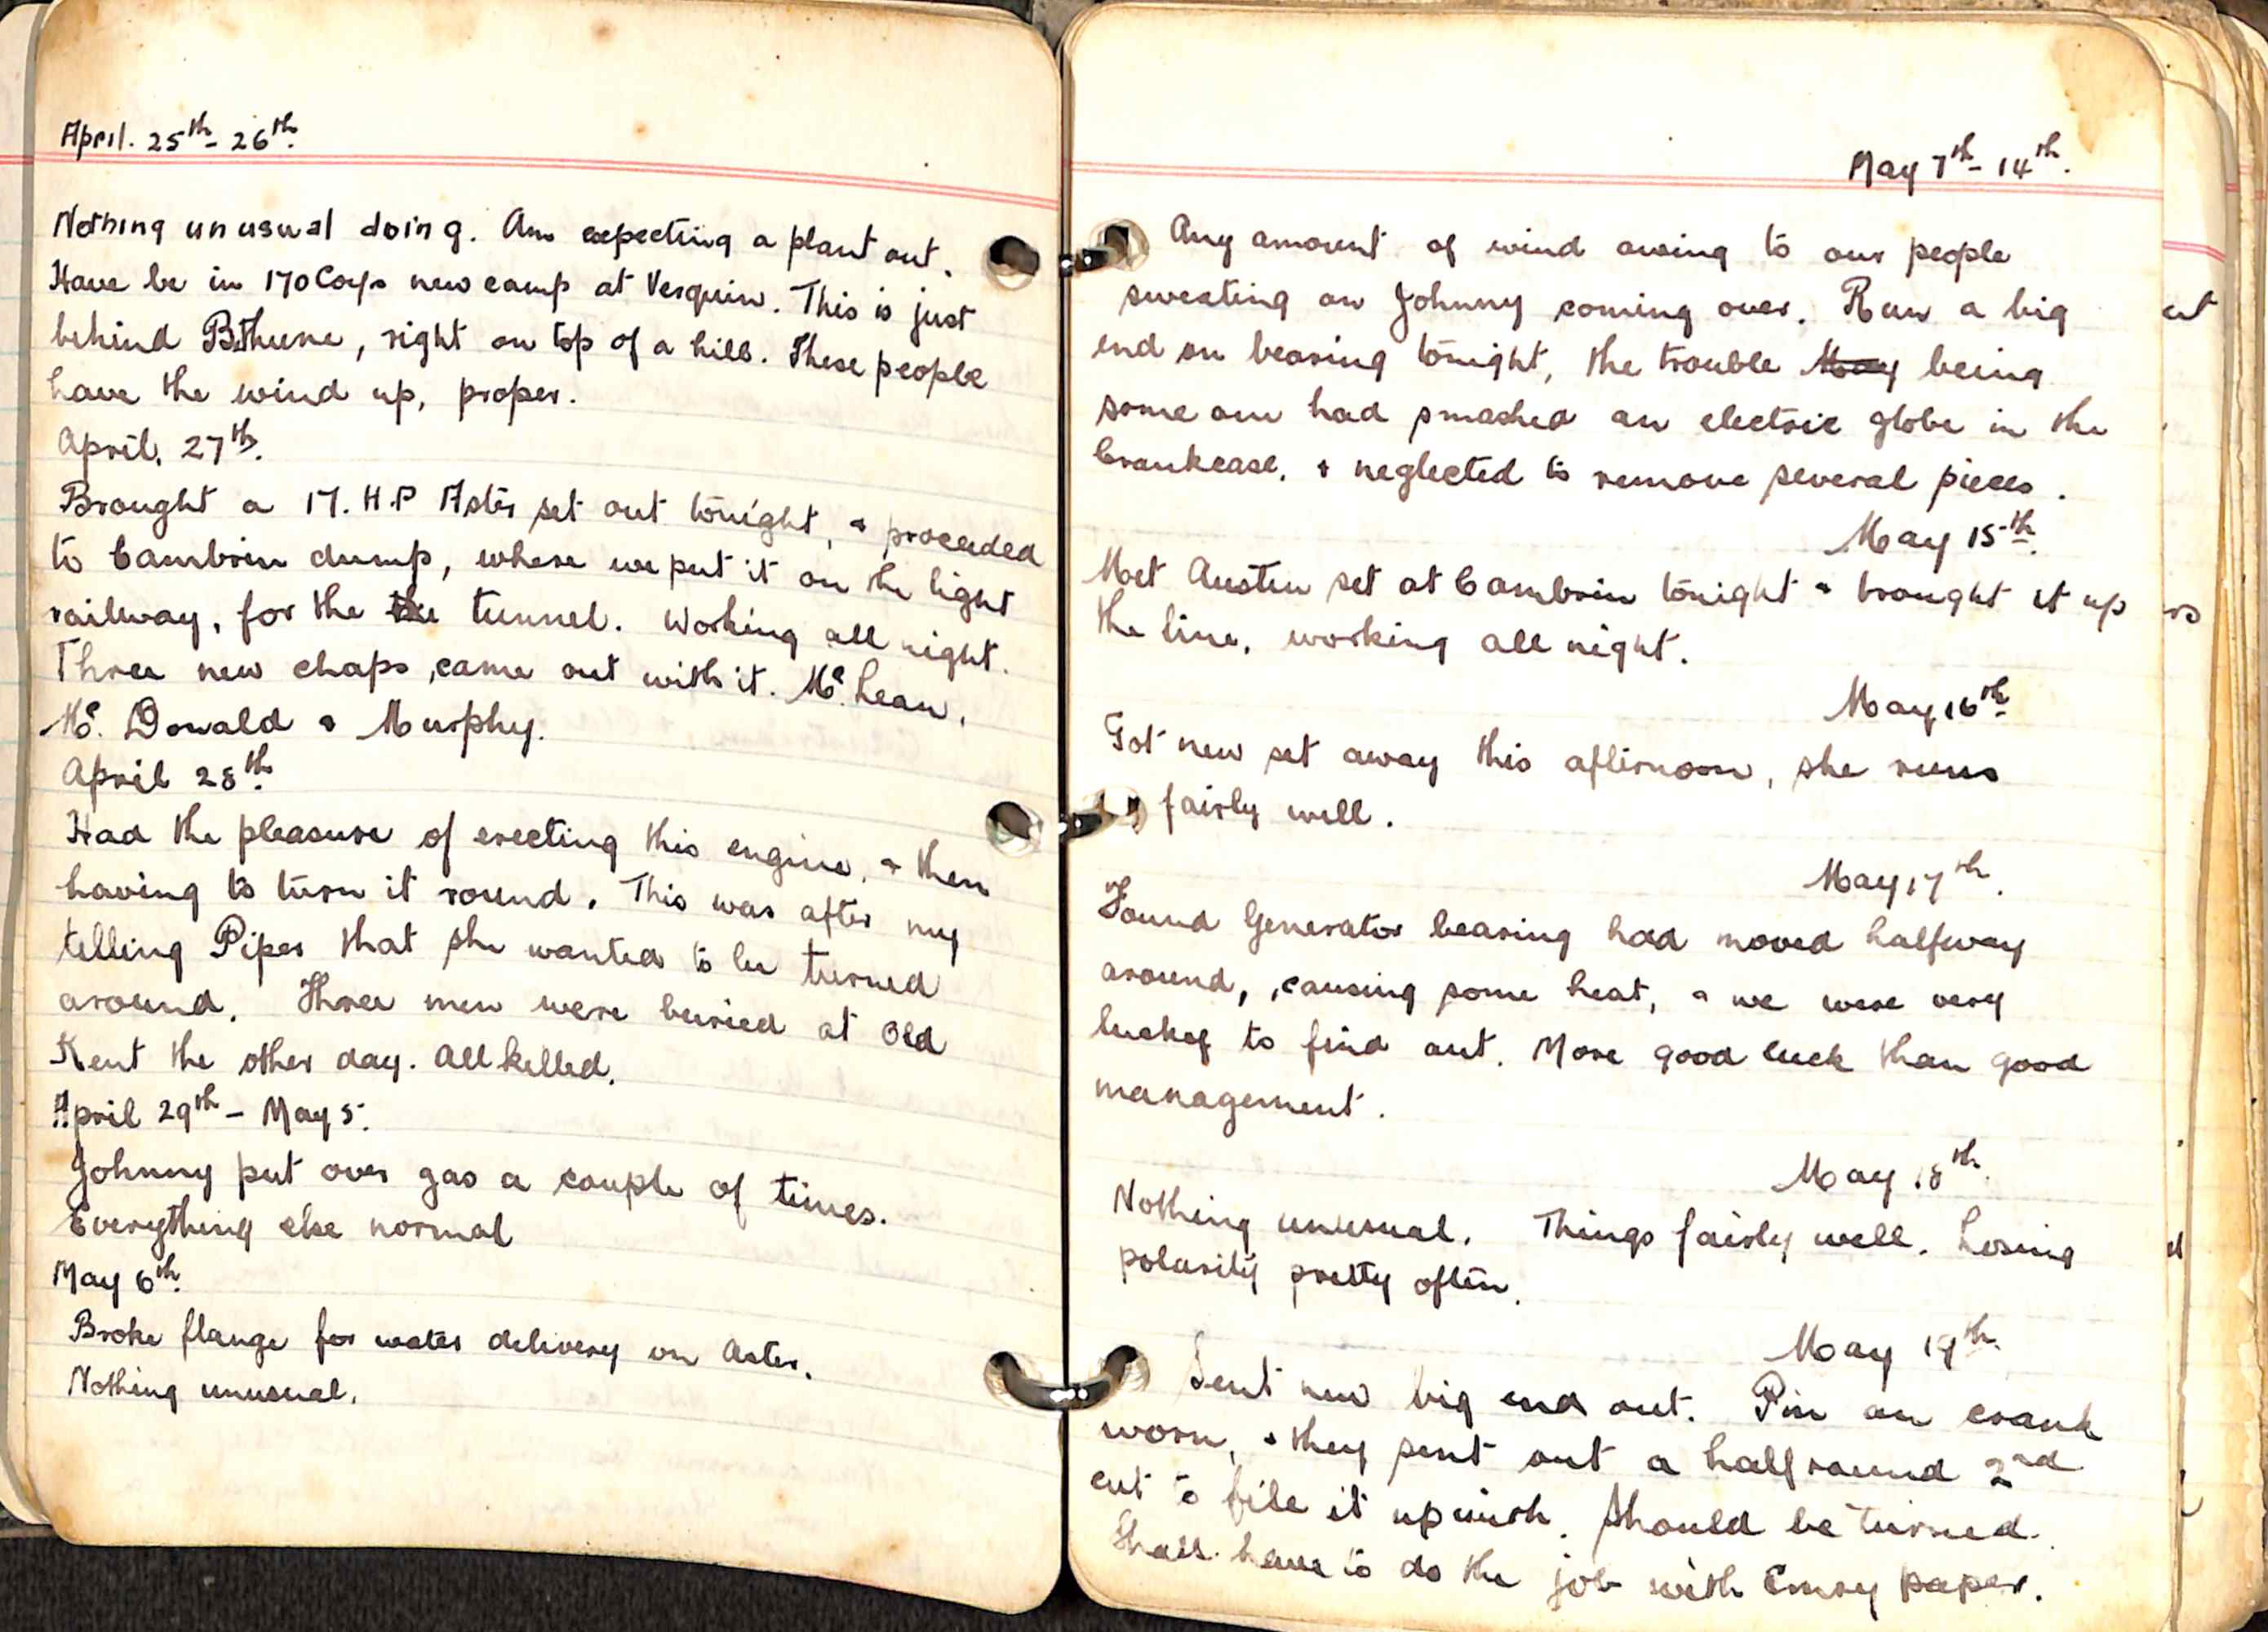 April. 25th - 26th.
Nothing unusual doing. Am expecting a plant out.
Have be in 170 Coys new camp at Verquin. This is just
behind Bethune, right on top of a hill. These people
have the wind up, proper.
April. 27th.
Brought a 17. H.P Aster set out tonight, & proceeded
to Cambrin dump, where we put it on the light
railway, for the the tunnel. Working all night.
Three new chaps, came out with it. Mc. Lean,
Mc. Donald & Murphy.
April 28th.
Had the pleasure of erecting this engine, & then
having to turn it round. This was after my
telling Piper that she wanted to be turned
around. Three men were buried at Old
Kent the other day. All killed.
April 29th - May 5.
Johnny put over gas a couple of times.
Everything else normal
May 6th.
Broke flange for water delivery on Aster.
Nothing unusual.
May 7th - 14th.
Any amount of wind owing to our people
sweating on Johnny coming over. Run a big
end on bearing tonight, the trouble May being
some one had smashed an electric globe in the
Crankcase, & neglected to remove several pieces.
May 15th.
Met Austin set at Cambrin tonight & brought it up
the line, working all night.
May 16th
Got new set away this afternoon, she runs
fairly well.
May 17th.
Found Generator bearing had moved halfway
around, causing some heat, & we were very
luckey to find out. More good luck than good
management.
May 18th.
Nothing unusual. Things fairly well. Losing
polarity pretty often.
May 19th.
Sent new big end out. Pin on crank
worn, & they sent out a half round 2nd
cut to file it up with. Should be turned.
Shall have to do the job with Emery paper.